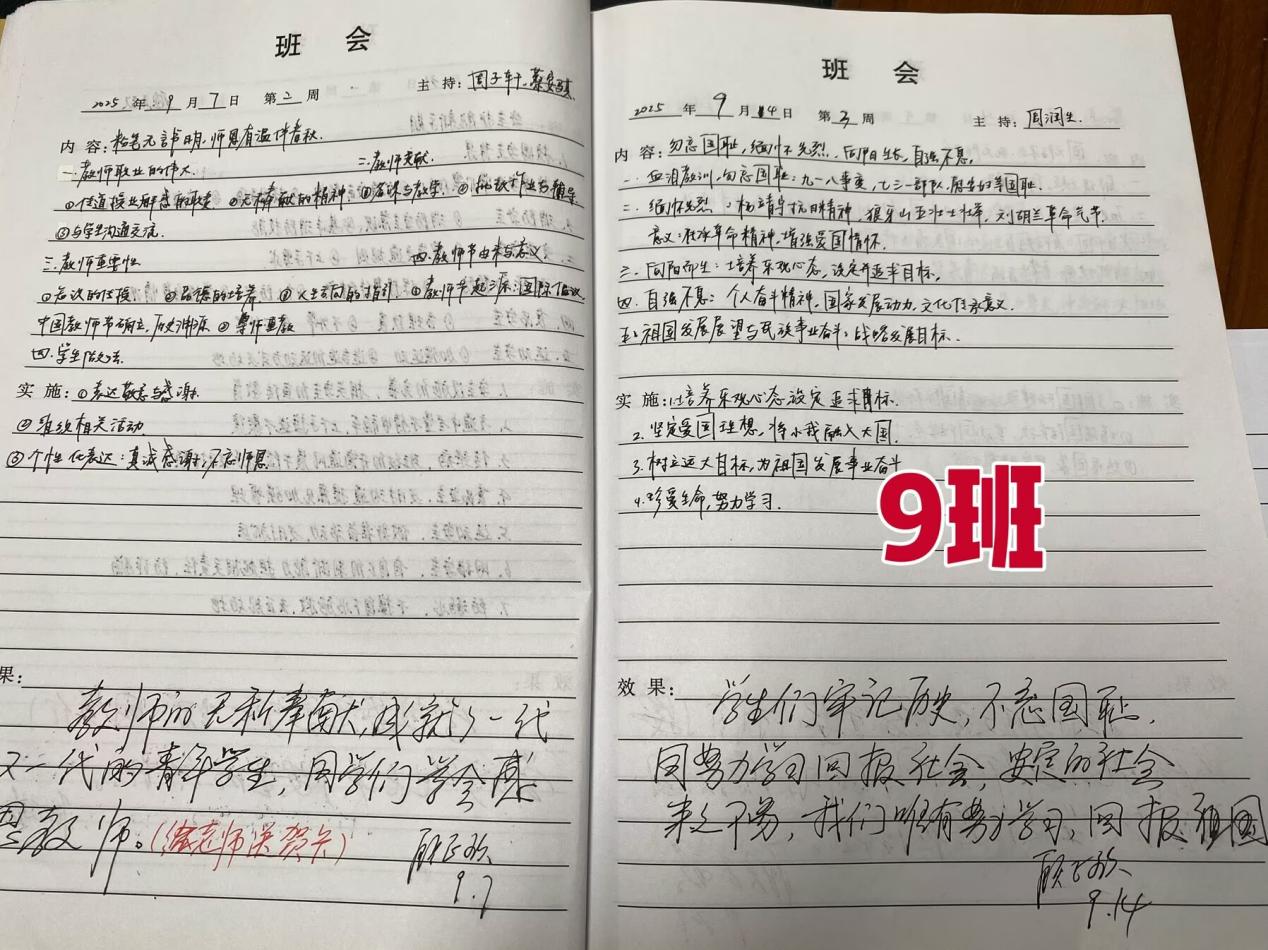 班 会
2025 年 9 月 7 日 第 二 周 主 持: 周子轩、蔡安琪
内 容: 粉笔无言书明,师恩有温伴春秋.
一.教师职业的伟大. 二.教师贡献.
①传道授业解惑的职责 ②无私奉献的精神 ①备课与教学. ②批改作业与辅导
③与学生沟通交流.
三.教师重要性 四.教师节由来与意义.
①知识的传授 ②品德的培养 ③人生方向的指引. ①教师节起源:国际倡议
中国教师节确立,历史渊源 ②尊师重教
四.学生做法
实 施: ①表达敬意与感谢.
②组织相关活动
③个性化表达:真诚感谢,不忘师恩
果:
教师的无私奉献,成就了一代
又一代的青年学生,同学们学会感
恩教师。(给老师送贺卡)
9.7
班 会
2025 年 9 月 14 日 第 3 周 主 持: 周润生.
内 容: 勿忘国耻,缅怀先烈,向阳生长,自强不息.
一.血泪教训,勿忘国耻:九一八事变,七三一部队,
二.缅怀先烈:杨靖宇抗日精神,狼牙山五壮士壮举,刘胡兰革命气节.
意义:秉承革命精神,增强爱国情怀.
三.向阳而生:培养乐观心态,设定并追求目标.
四.自强不息:个人奋斗精神,国家发展动力,文化传承意义.
五:祖国发展展望与民族事业奋斗:战略发展目标.
实 施: 1.培养乐观心态设定追求目标.
2.坚定爱国理想,将小我融入大国.
3.树立远大目标,为祖国发展事业奋斗
4.珍爱生命,努力学习.
9班
效 果:
学生们牢记历史,不忘国耻.
用努力学习回报社会,安定的社会
来之不易,我们唯有努力学习,回报祖国
9.14